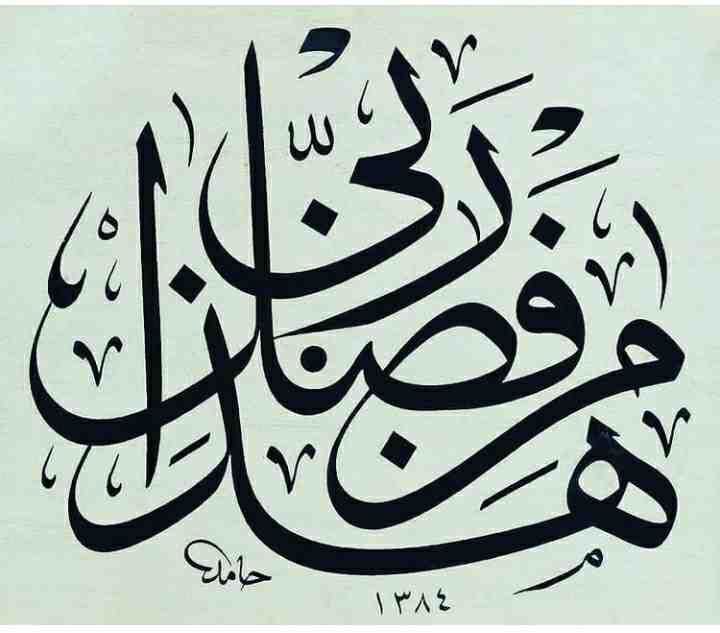 هذا من فضل ربي
حامد
١٣٨٤